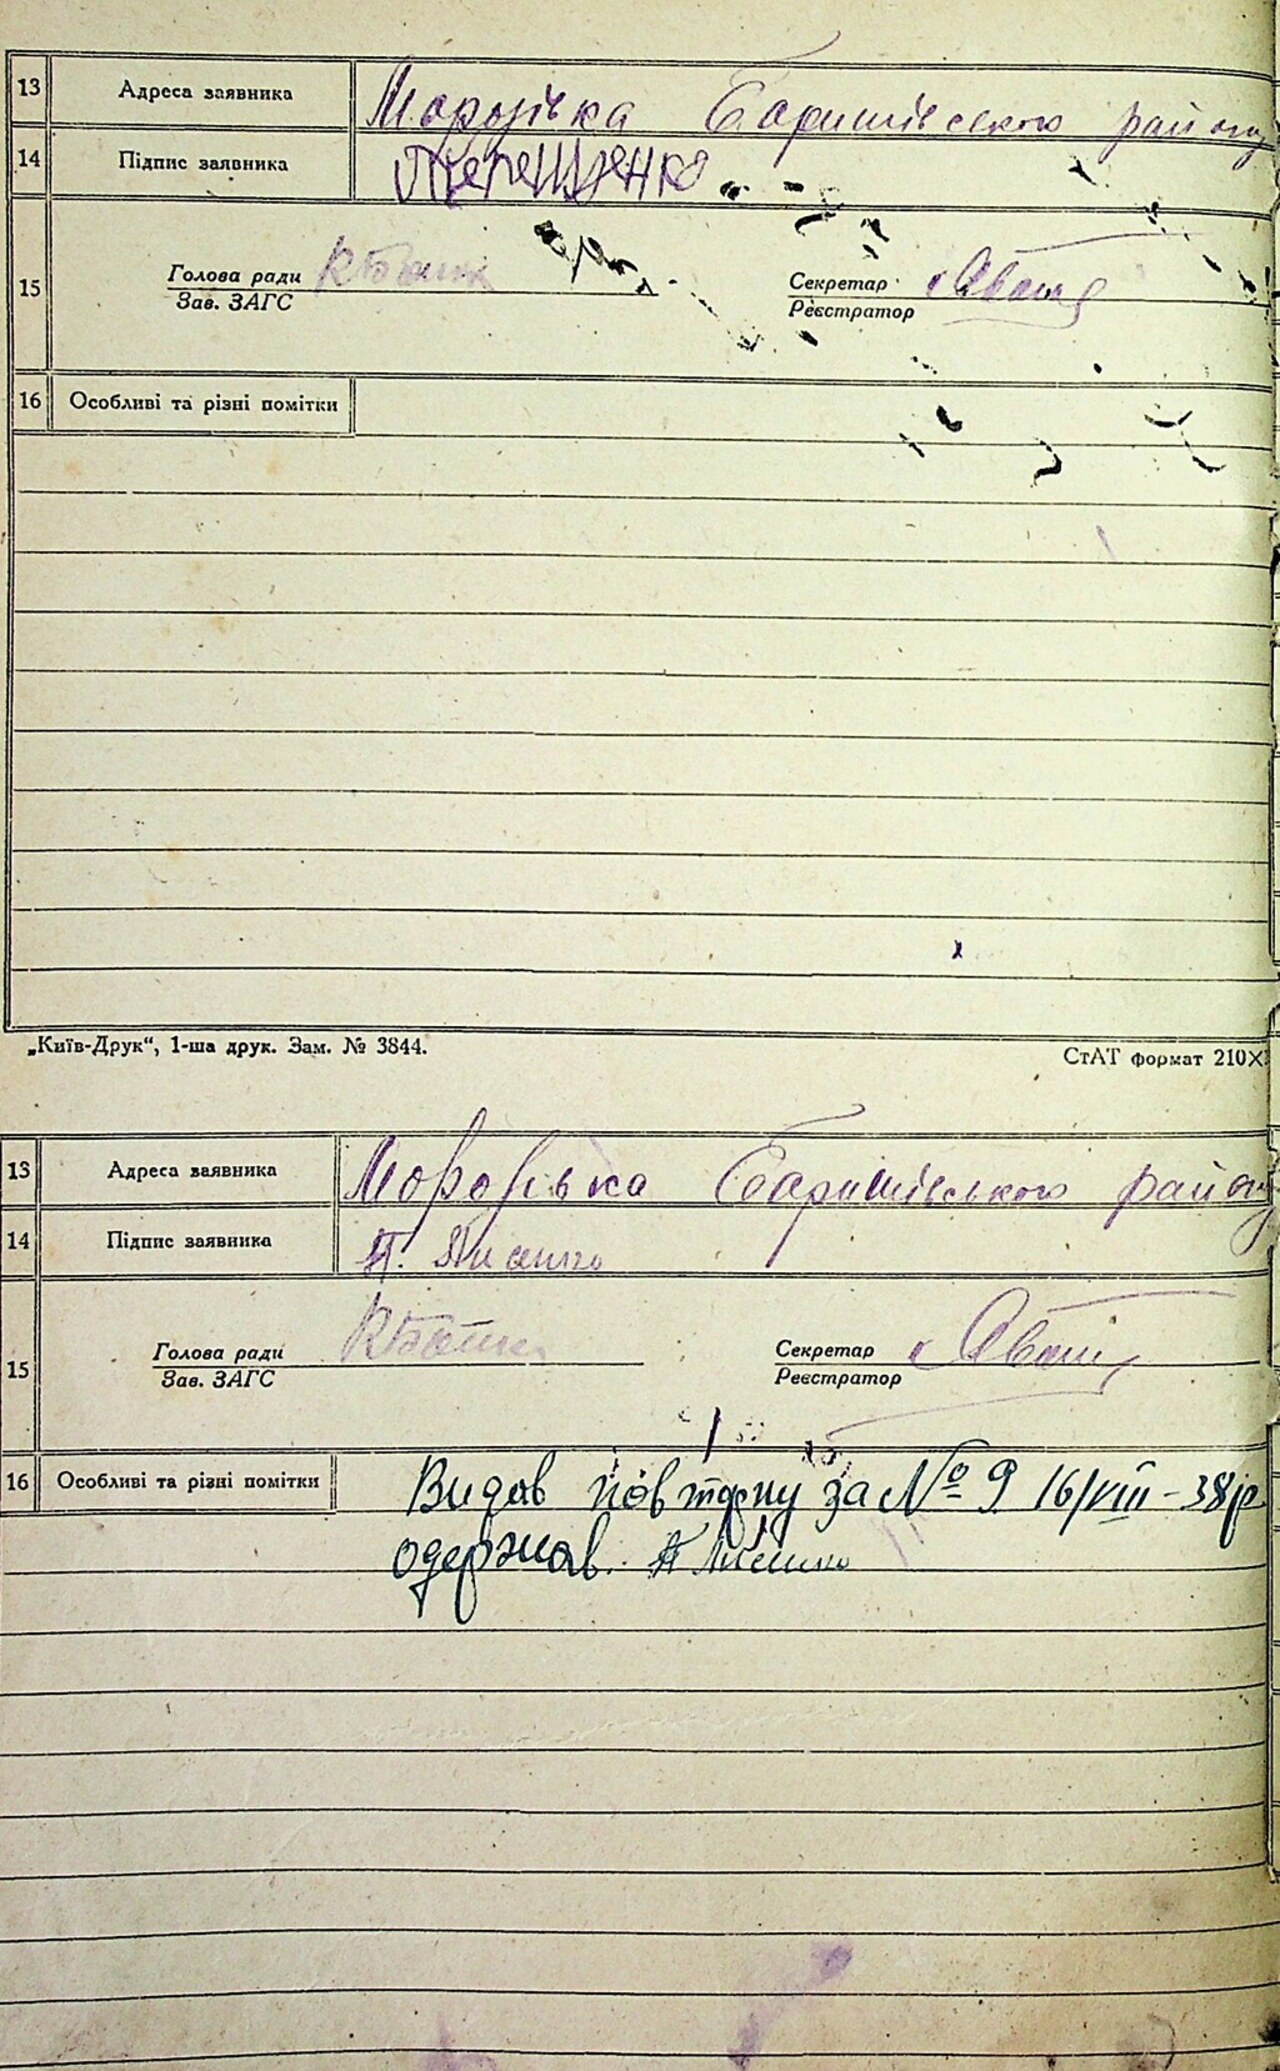 13 Адреса заявника Морозівка Баришівського району
14 Підпис заявника Терещенко
15 Голова ради Секретар
Зав. ЗАГС Реєстратор
16 Особливі та різні помітки
„Київ-Друк“, 1-ша друк. Зам. № 3844.
СтАТ формат 210×
13 Адреса заявника Морозівка Баришівського району
14 Підпис заявника П.
15 Голова ради Секретар
Зав. ЗАГС Реєстратор
16 Особливі та різні помітки Видав повторну за № 9 16/VIII-38 р
одержав.